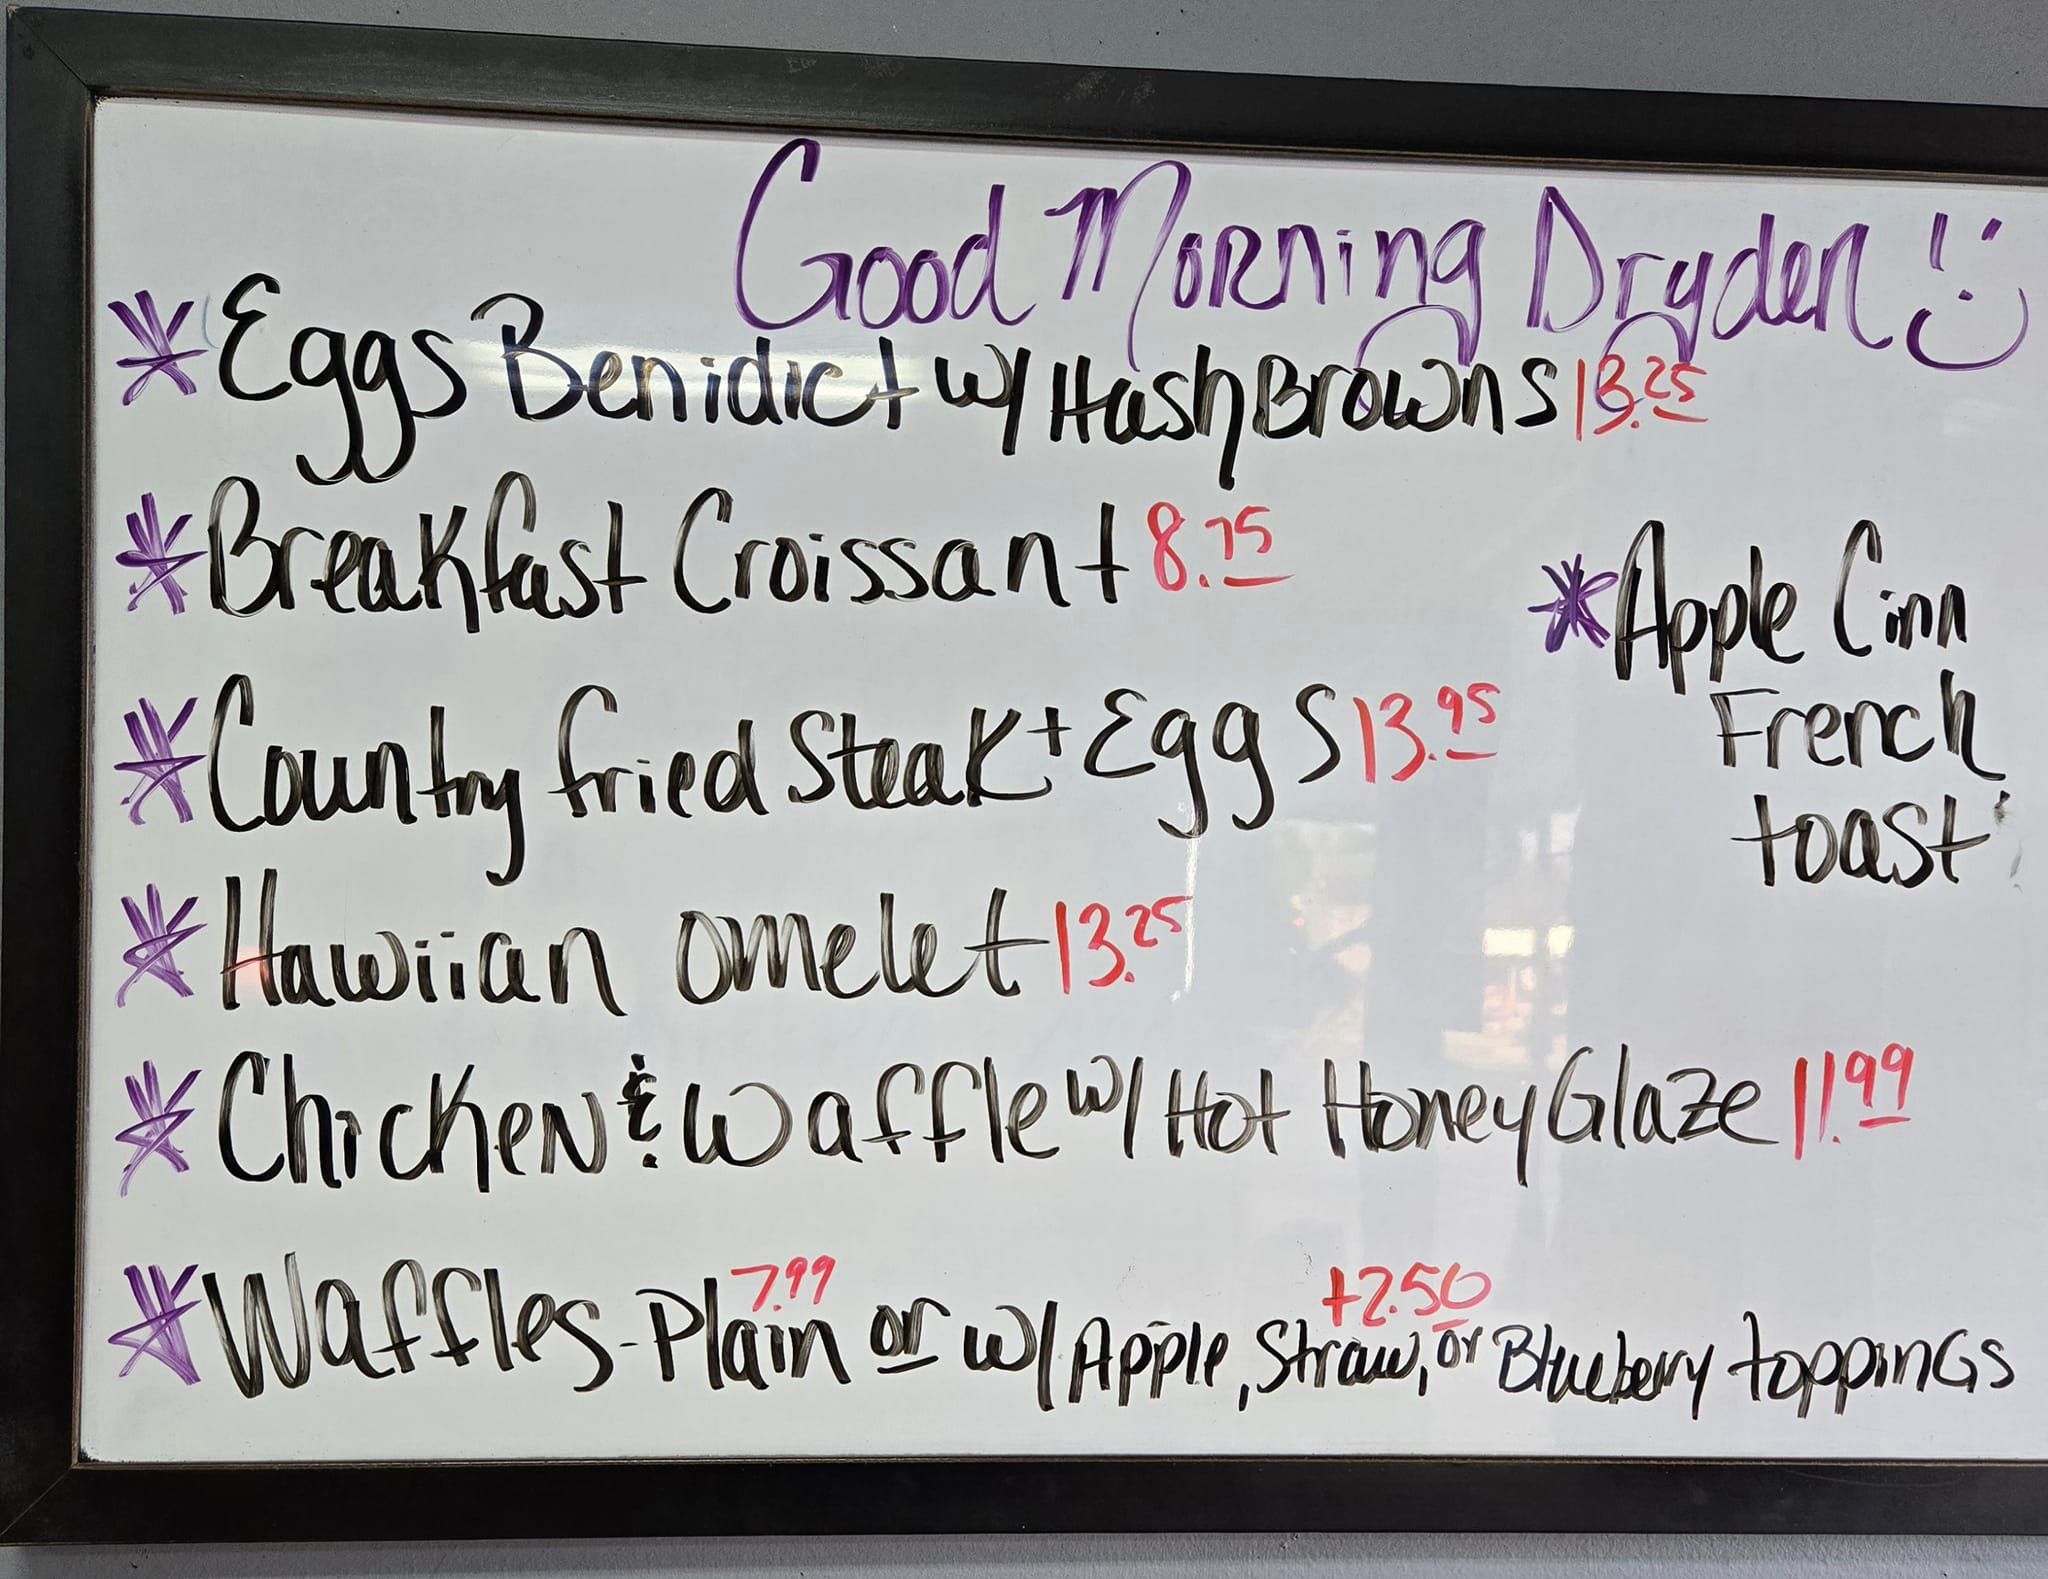 Good Morning Dryden
* Eggs Benidict w/ Hash Browns 13.25
* Breakfast Croissant 8.75
* Country fried Steak + Eggs 13.95
* Apple Cinn
French
toast
* Hawiian omelet 13.25
* Chicken & Waffle w/ Hot Honey Glaze 11.99
7.99 +2.50
* Waffles - Plain or w/ Apple, Straw, or Blueberry toppings